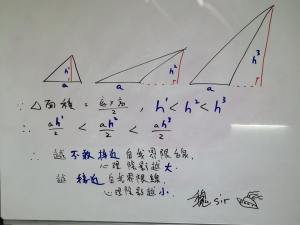 h¹ h² h³
a a a
∵ △面積 = 底 x 高 / 2 , h¹ < h² < h³
∴ ah¹/2 < ah²/2 < ah³/2
∴ 越不敢接近自我界限線,
心理陰影越大.
越接近自我界限線,
心理陰影越小.
sir